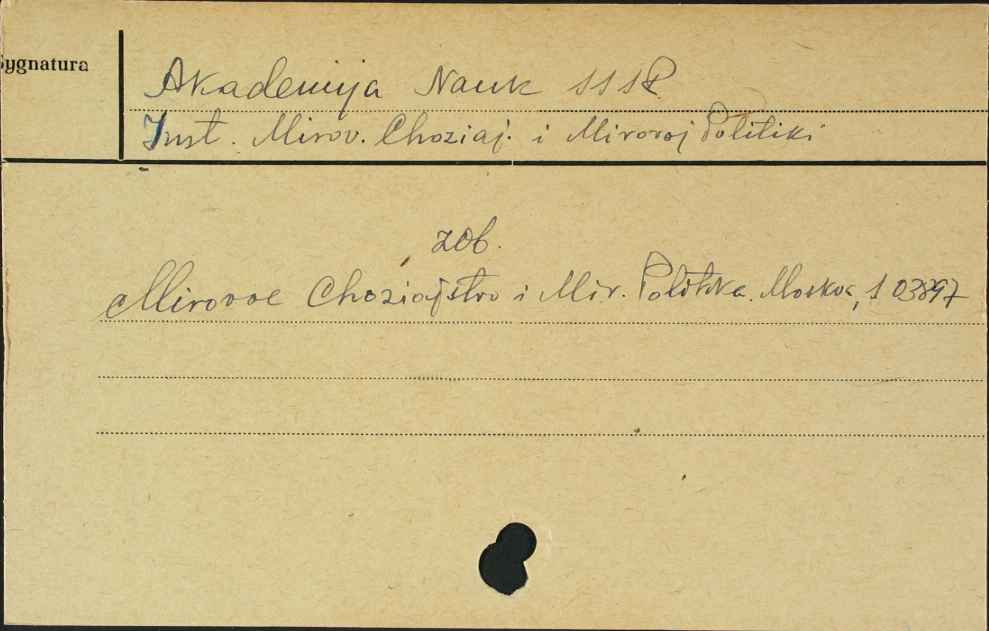 Sygnatura
Akademija Nauk SSSR
Inst. Mirov. Choziaj. i Mirovoj Politiki
zob.
Mirovoe Choziajstvo i Mir. Politika. Moskva, 103897